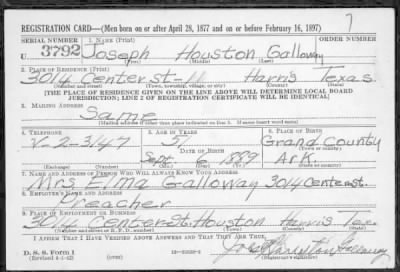 7
REGISTRATION CARD—(Men born on or after April 28, 1877 and on or before February 16, 1897)
SERIAL NUMBER 1. NAME (Print) ORDER NUMBER
U 3792 Joseph Houston Galloway
(First) (Middle) (Last)
2. PLACE OF RESIDENCE (Print)
3014 Center St- Harris Texas
(Number and street) (Town, township, village, or city) (County) (State)
[THE PLACE OF RESIDENCE GIVEN ON THE LINE ABOVE WILL DETERMINE LOCAL BOARD
JURISDICTION; LINE 2 OF REGISTRATION CERTIFICATE WILL BE IDENTICAL]
3. MAILING ADDRESS
Same
[Mailing address if other than place indicated on line 2. If same insert word same]
4. TELEPHONE 5. AGE IN YEARS 6. PLACE OF BIRTH
V-2-3147 Grand County
DATE OF BIRTH (Town or county)
Sept 6 1889 Ark.
(Exchange) (Number) (Mo.) (Day) (Yr.) (State or country)
7. NAME AND ADDRESS OF PERSON WHO WILL ALWAYS KNOW YOUR ADDRESS
Mrs Erma Galloway 3014 Center st.
8. EMPLOYER'S NAME AND ADDRESS
Preacher
9. PLACE OF EMPLOYMENT OR BUSINESS
3014 Center St. Houston Harris Tex
(Number and street or R. F. D. number) (Town) (County) (State)
I AFFIRM THAT I HAVE VERIFIED ABOVE ANSWERS AND THAT THEY ARE TRUE.
D. S. S. Form 1
(Revised 4-1-42) (over) Houston Galloway